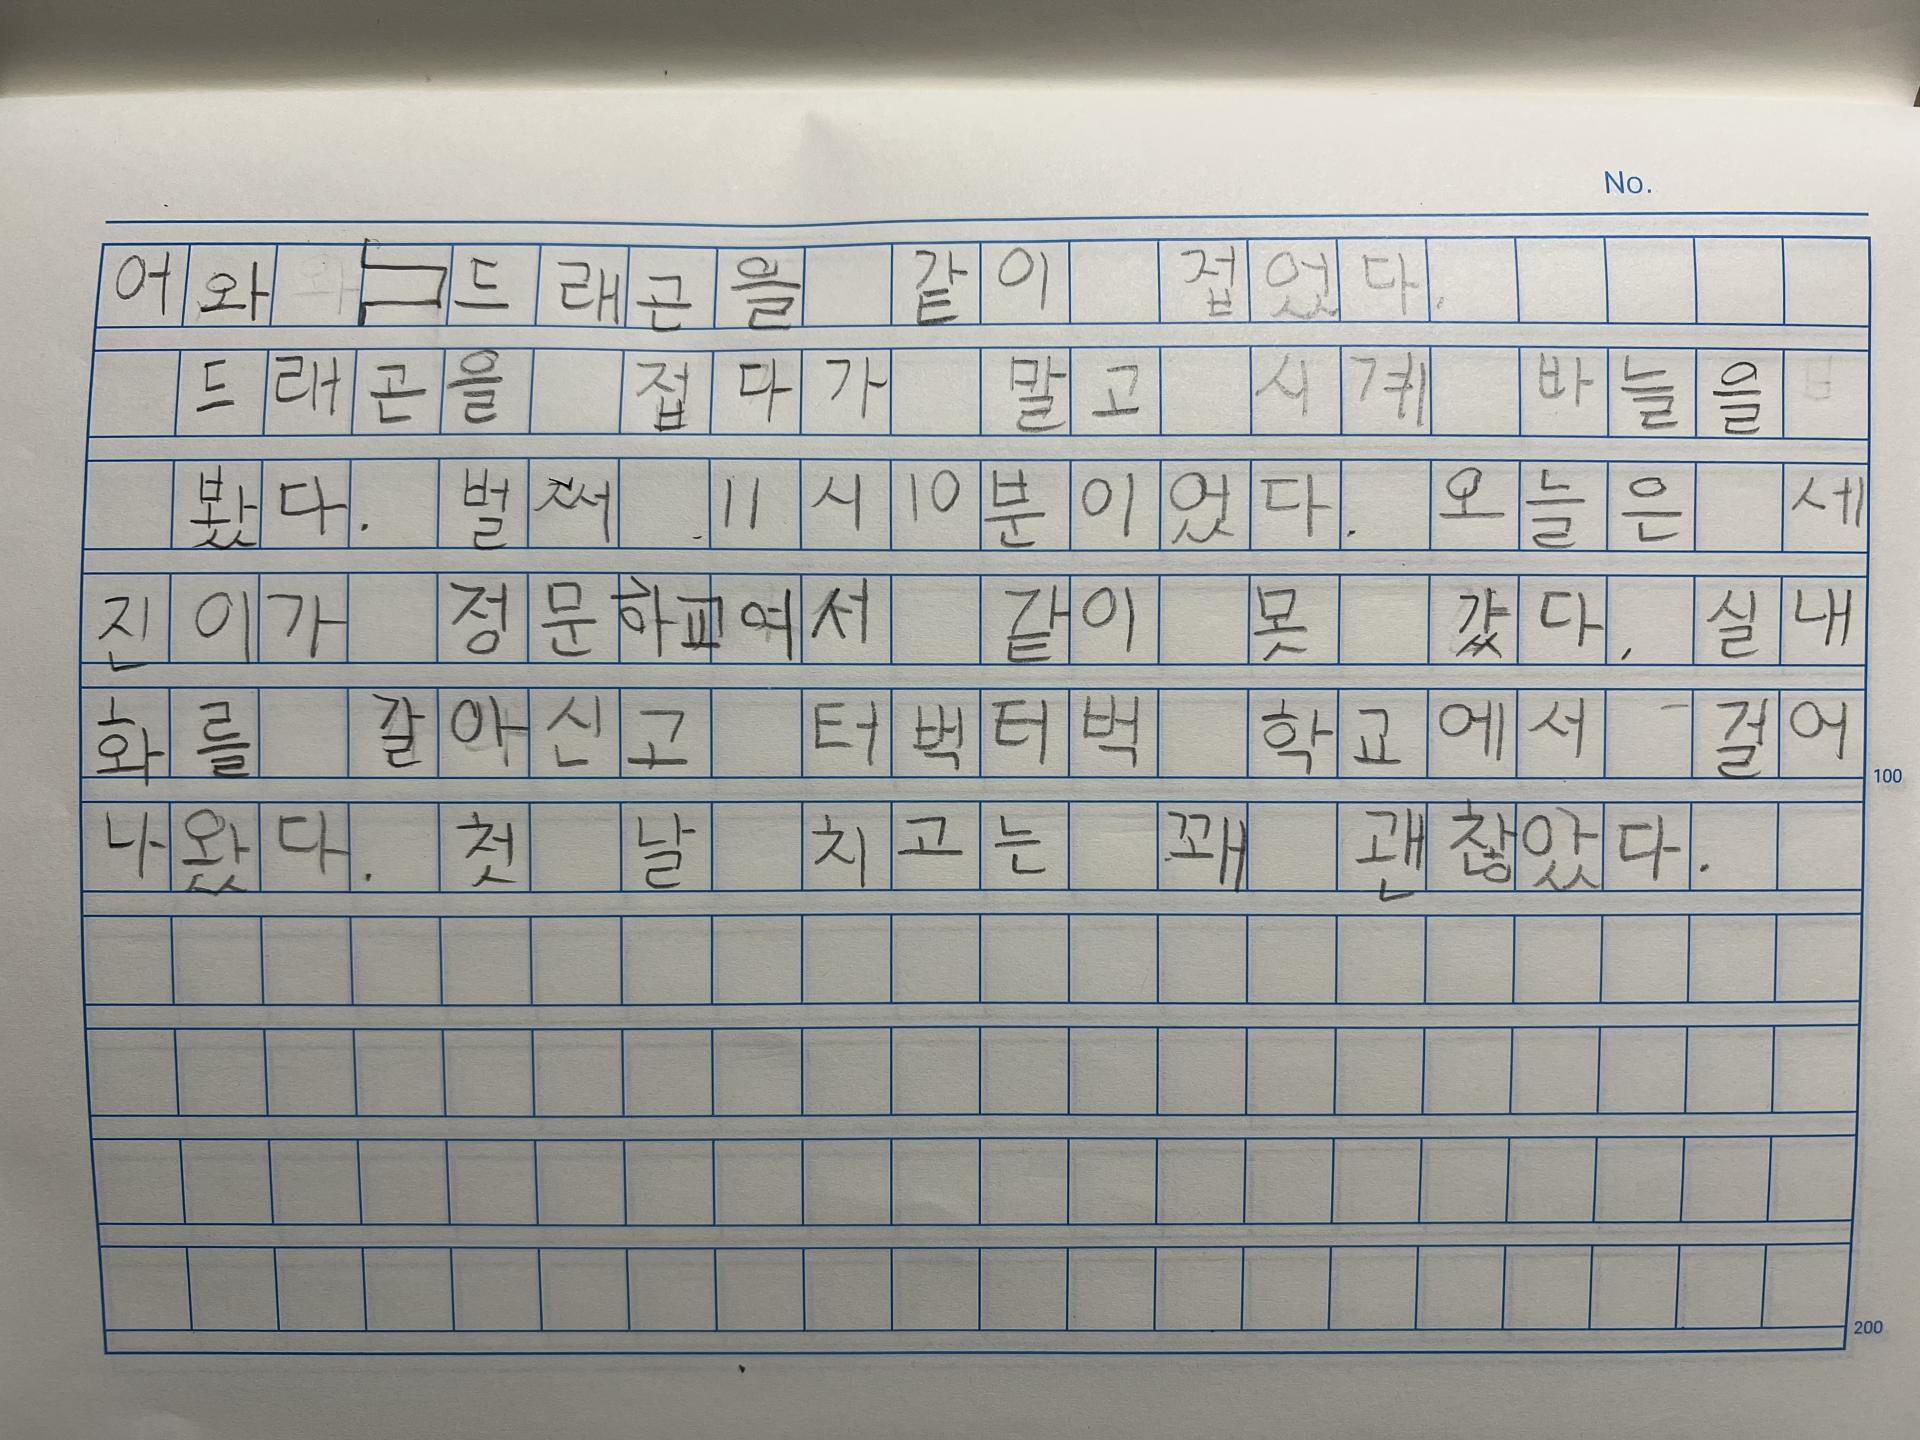 No.
어와 드래곤을 같이 접었다.
드래곤을 접다가 말고 시계 바늘을
봤다. 벌써 11시 10분이었다. 오늘은 세
진이가 정문하교여서 같이 못 갔다. 실내
화를 갈아신고 터벅터벅 학교에서 걸어
100
나왔다. 첫 날 치고는 꽤 괜찮았다.
200